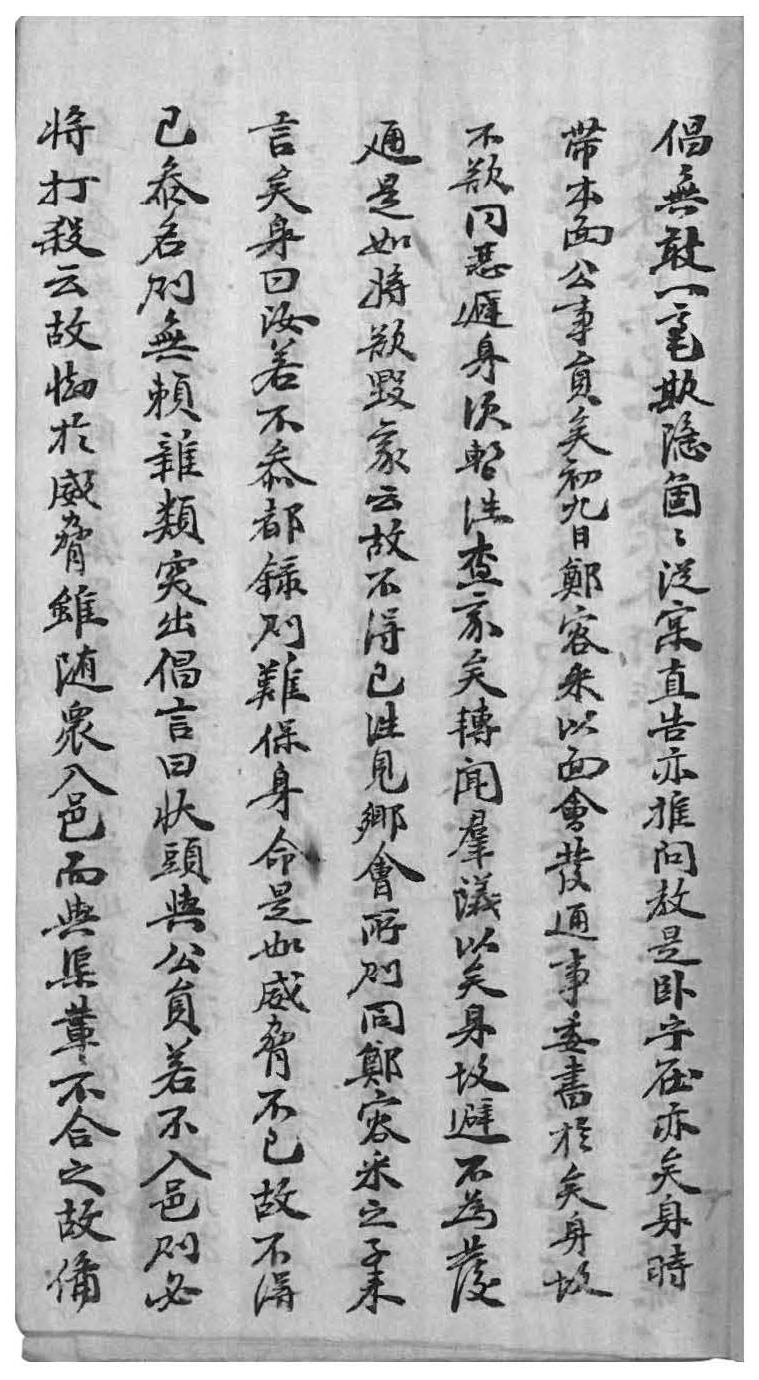 倡無敢一毫欺隱箇〻從實直告亦推問敎是臥乎在亦矣身時
帶本面公事員矣初九日鄭容采以面會發通事委書於矣身故
不欲同惡避身次暫注查家矣轉聞羣議以矣身故避不爲發
通是如將欲毀家云故不得已往見鄕會所則同鄭容采之子來
言矣身曰汝若不叅都錄則難保身命是如威脅不已故不得
已叅名則無賴雜類突出倡言曰狀頭與公員若不入邑則必
將打殺云故㤼於威脅雖随衆入邑而與渠輩不合之故備